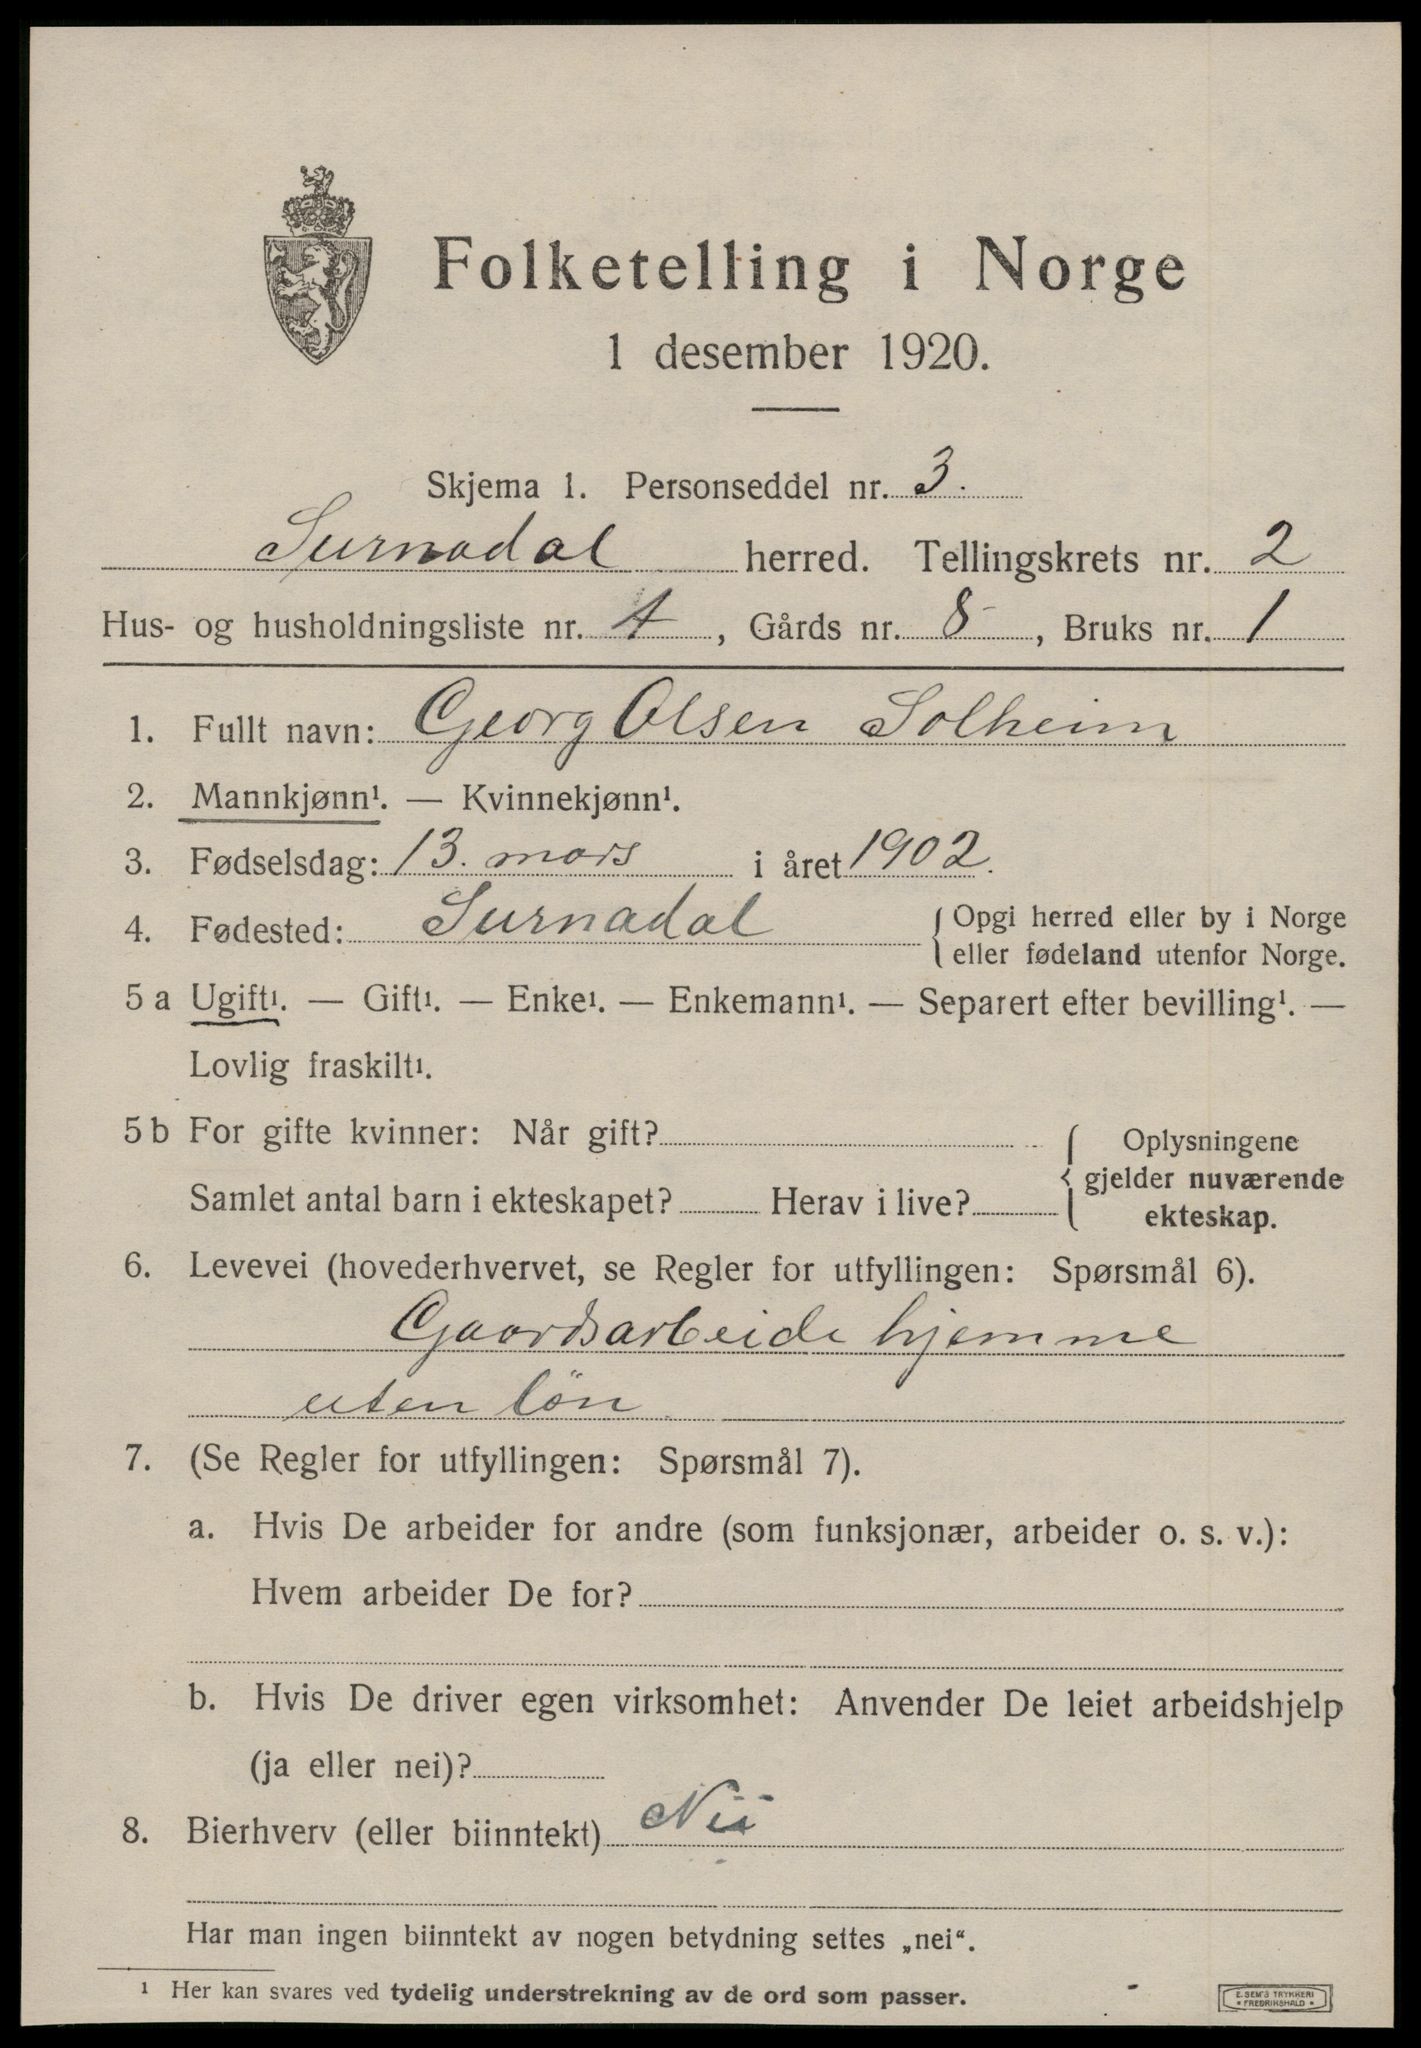 Folketelling i Norge
1 desember 1920.
Skjema 1. Personseddel nr. 3.
Surnadal herred. Tellingskrets nr. 2
Hus- og husholdningsliste nr. 4, Gårds nr. 8, Bruks nr. 1
1. Fullt navn: Georg Olsen Solheim
2. Mannkjønn¹. — Kvinnekjønn¹.
3. Fødselsdag: 13. mars i året 1902.
4. Fødested: Surnadal { Opgi herred eller by i Norge
eller fødeland utenfor Norge.
5 a Ugift¹. — Gift¹. — Enke¹. — Enkemann¹. — Separert efter bevilling¹. —
Lovlig fraskilt¹.
5 b For gifte kvinner: Når gift? { Oplysningene
gjelder nuværende
Samlet antal barn i ekteskapet? Herav i live?
ekteskap.
6. Levevei (hovederhvervet, se Regler for utfyllingen: Spørsmål 6).
Gaardsarbeide hjemme
uten løn
7. (Se Regler for utfyllingen: Spørsmål 7).
a. Hvis De arbeider for andre (som funksjonær, arbeider o. s. v.):
Hvem arbeider De for?
b. Hvis De driver egen virksomhet: Anvender De leiet arbeidshjelp
(ja eller nei)?
8. Bierhverv (eller biinntekt) Nei
Har man ingen biinntekt av nogen betydning settes „nei“.
¹ Her kan svares ved tydelig understrekning av de ord som passer.
E. SEM'S TRYKKERI
• FREDRIKSHALD •